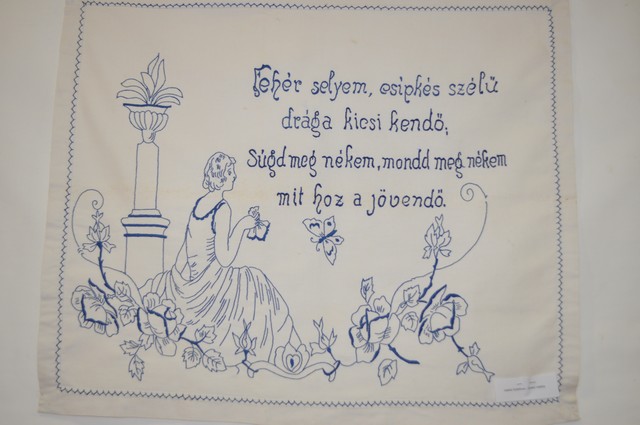 Fehér selyem, csipkés szélű
drága kicsi kendő,
Súgd meg nékem, mondd meg nékem
mit hoz a jövendő.